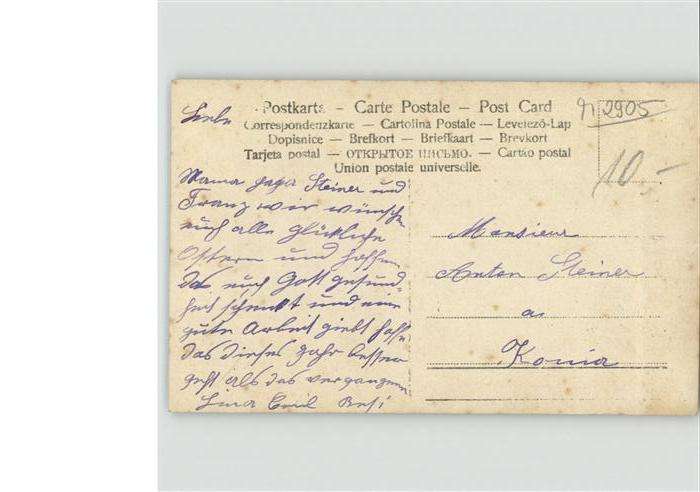 Postkarte - Carte Postale - Post Card
Correspondenzkarte — Cartolina Postale — Levelező-Lap
Dopisnice — Brefkort — Briefkaart — Brevkort
Tarjeta postal — ОТКРЫТОЕ ПИСЬМО. — Cartão postal
Union postale universelle.
2905
10.-
Liebe
Mama Steiner und
Franz wir wünschen
euch alle glückliche
Ostern und hoffen
das euch Gott gesund-
heit schenkt und eine
gute Arbeit giebt hoffe
das dieses Jahr besser
geht als das vergangene
Lina Emil
Monsieur
Anton Steiner
a
Konia